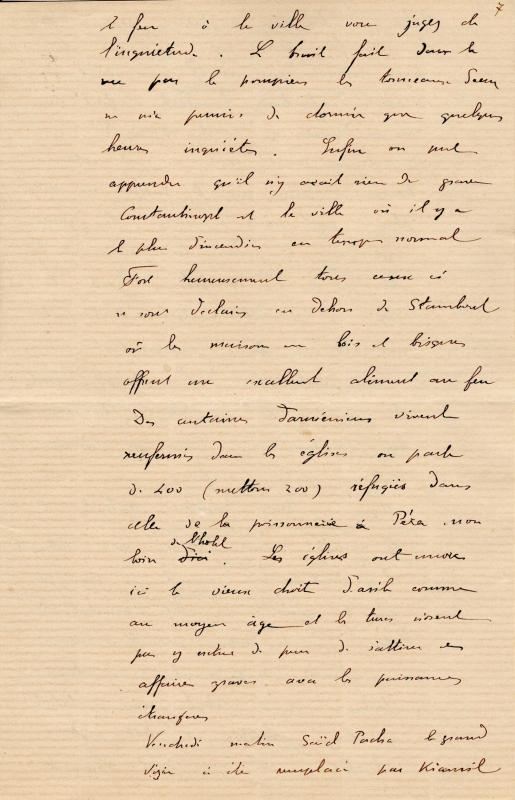 7
le feu à la ville vous jugez de
l'inquiétude. Le bruit fait dans la
rue par les pompiers les tonneaux d'eau
ne m'a permis de dormir que quelques
heures inquiètes. Enfin on put
apprendre qu'il n'y avait rien de grave
Constantinople est la ville où il y a
le plus d'incendies en temps normal
Fort heureusement tous ceux ci
se sont déclarés en dehors de Stamboul
où les maisons en bois et
offrent un excellent aliment au feu
Des centaines d'arméniens vivent
renfermés dans les églises on parle
de 400 (mettons 200) réfugiés dans
celle de la poissonnerie à Péra non
de l'hotel
loin d'ici. Les églises ont encore
ici le vieux droit d'asile comme
au moyen âge et les turcs n'osent
pas y entrer de peur de s'attirer des
affaires graves avec les puissances
étrangères
Vendredi matin Saïd Pacha le grand
Vizir a été remplacé par Kiamil